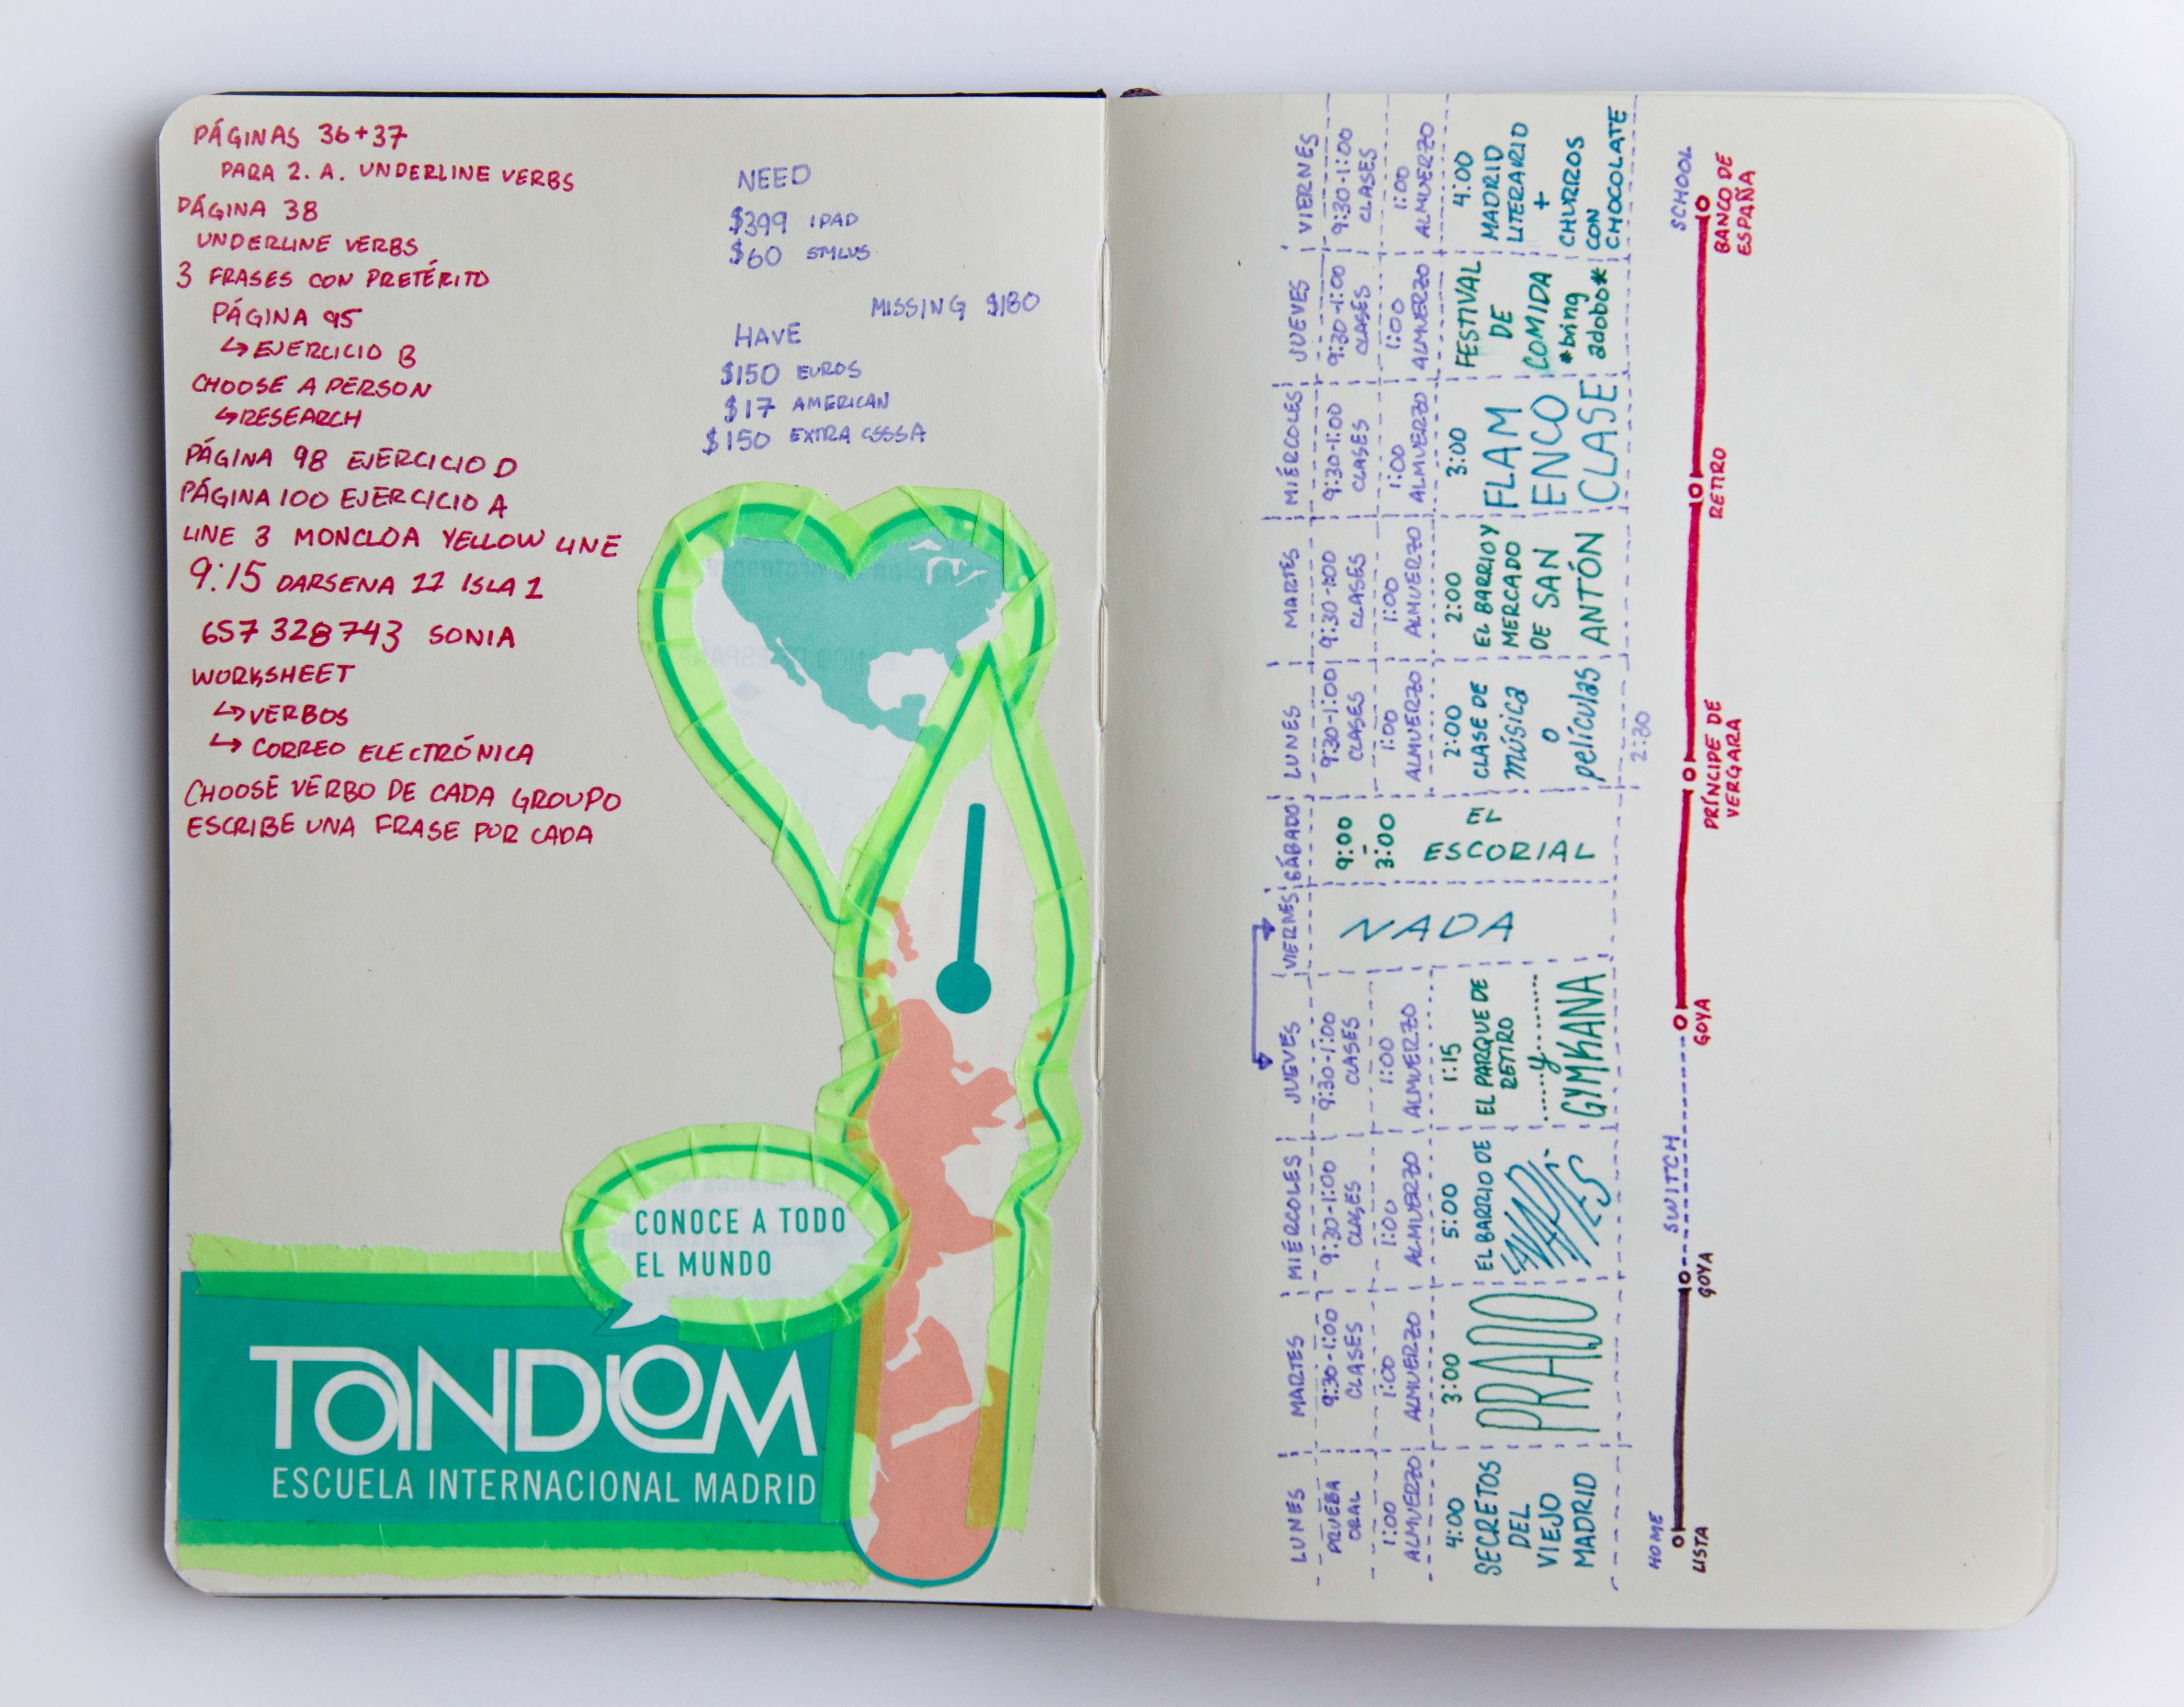 PÁGINAS 36+37
PARA 2. A. UNDERLINE VERBS
PÁGINA 38
UNDERLINE VERBS
3 FRASES CON PRETÉRITO
PÁGINA 95
↳ EJERCICIO B
CHOOSE A PERSON
↳ RESEARCH
PÁGINA 98 EJERCICIO D
PÁGINA 100 EJERCICIO A
LINE 3 MONCLOA YELLOW LINE
9:15 DARSENA 11 ISLA 1
657 328743 SONIA
WORKSHEET
↳ VERBOS
↳ CORREO ELECTRÓNICA
CHOOSE VERBO DE CADA GROUPO
ESCRIBE UNA FRASE POR CADA
NEED
$399 IPAD
$60 STYLUS
MISSING $180
HAVE
$150 EUROS
$17 AMERICAN
$150 EXTRA
CONOCE A TODO
EL MUNDO
TANDEM
ESCUELA INTERNACIONAL MADRID
LUNES
PRUEBA
ORAL
1:00
ALMUERZO
4:00
SECRETOS
DEL
VIEJO
MADRID
MARTES
9:30-1:00
CLASES
1:00
ALMUERZO
3:00
PRADO
MIÉRCOLES
9:30-1:00
CLASES
1:00
ALMUERZO
5:00
EL BARRIO DE
JUEVES
9:30-1:00
CLASES
1:00
ALMUERZO
1:15
EL PARQUE DE
RETIRO
y
GYMKANA
VIERNES
NADA
SÁBADO
9:00
-
3:00
EL
ESCORIAL
LUNES
9:30-1:00
CLASES
1:00
ALMUERZO
2:00
CLASE DE
música
o
películas
2:30
MARTES
9:30-1:00
CLASES
1:00
ALMUERZO
2:00
EL BARRIO Y
MERCADO
DE SAN
ANTÓN
MIÉRCOLES
9:30-1:00
CLASES
1:00
ALMUERZO
3:00
FLAM
ENCO
CLASE
JUEVES
9:30-1:00
CLASES
1:00
ALMUERZO
FESTIVAL
DE
COMIDA
*bring
adobo*
VIERNES
9:30-1:00
CLASES
1:00
ALMUERZO
4:00
MADRID
LITERARIO
+
CHURROS
CON
CHOCOLATE
HOME
LISTA
SWITCH
GOYA
GOYA
PRÍNCIPE DE
VERGARA
RETIRO
SCHOOL
BANCO DE
ESPAÑA